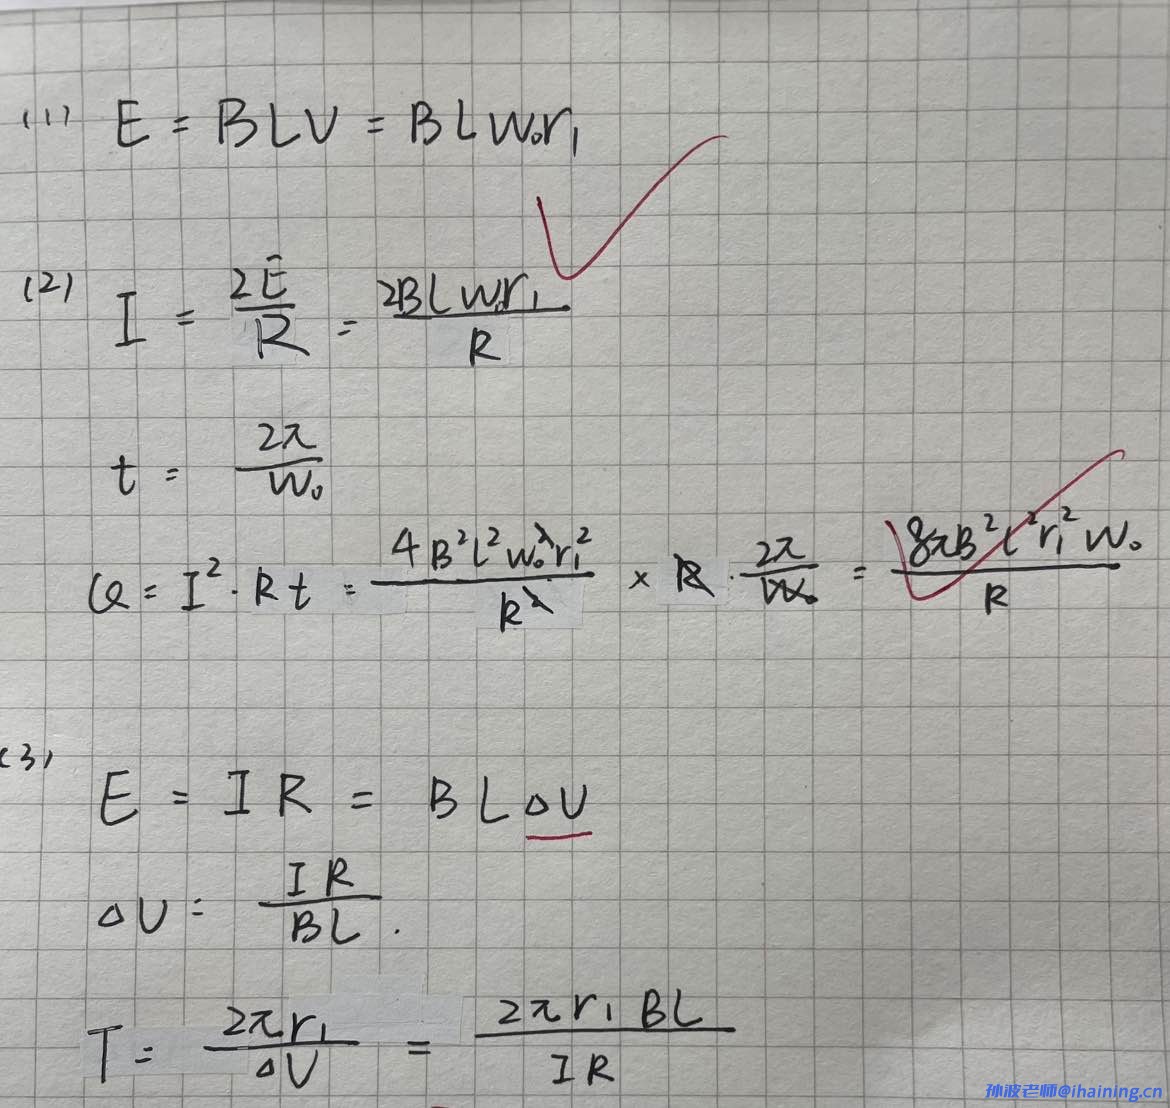 (1) E = BLV = BLW₀r₁
(2) I = 2E/R = 2BLW₀r₁/R
t = 2π/W₀
Q = I²·Rt = 4B²L²W₀²r₁²/R² × R · 2π/W₀ = 8πB²L²r₁²W₀/R
(3) E = IR = BL△U
△U = IR/BL.
T = 2πr₁/△U = 2πr₁BL/IR
孙波老师@ihaining.cn